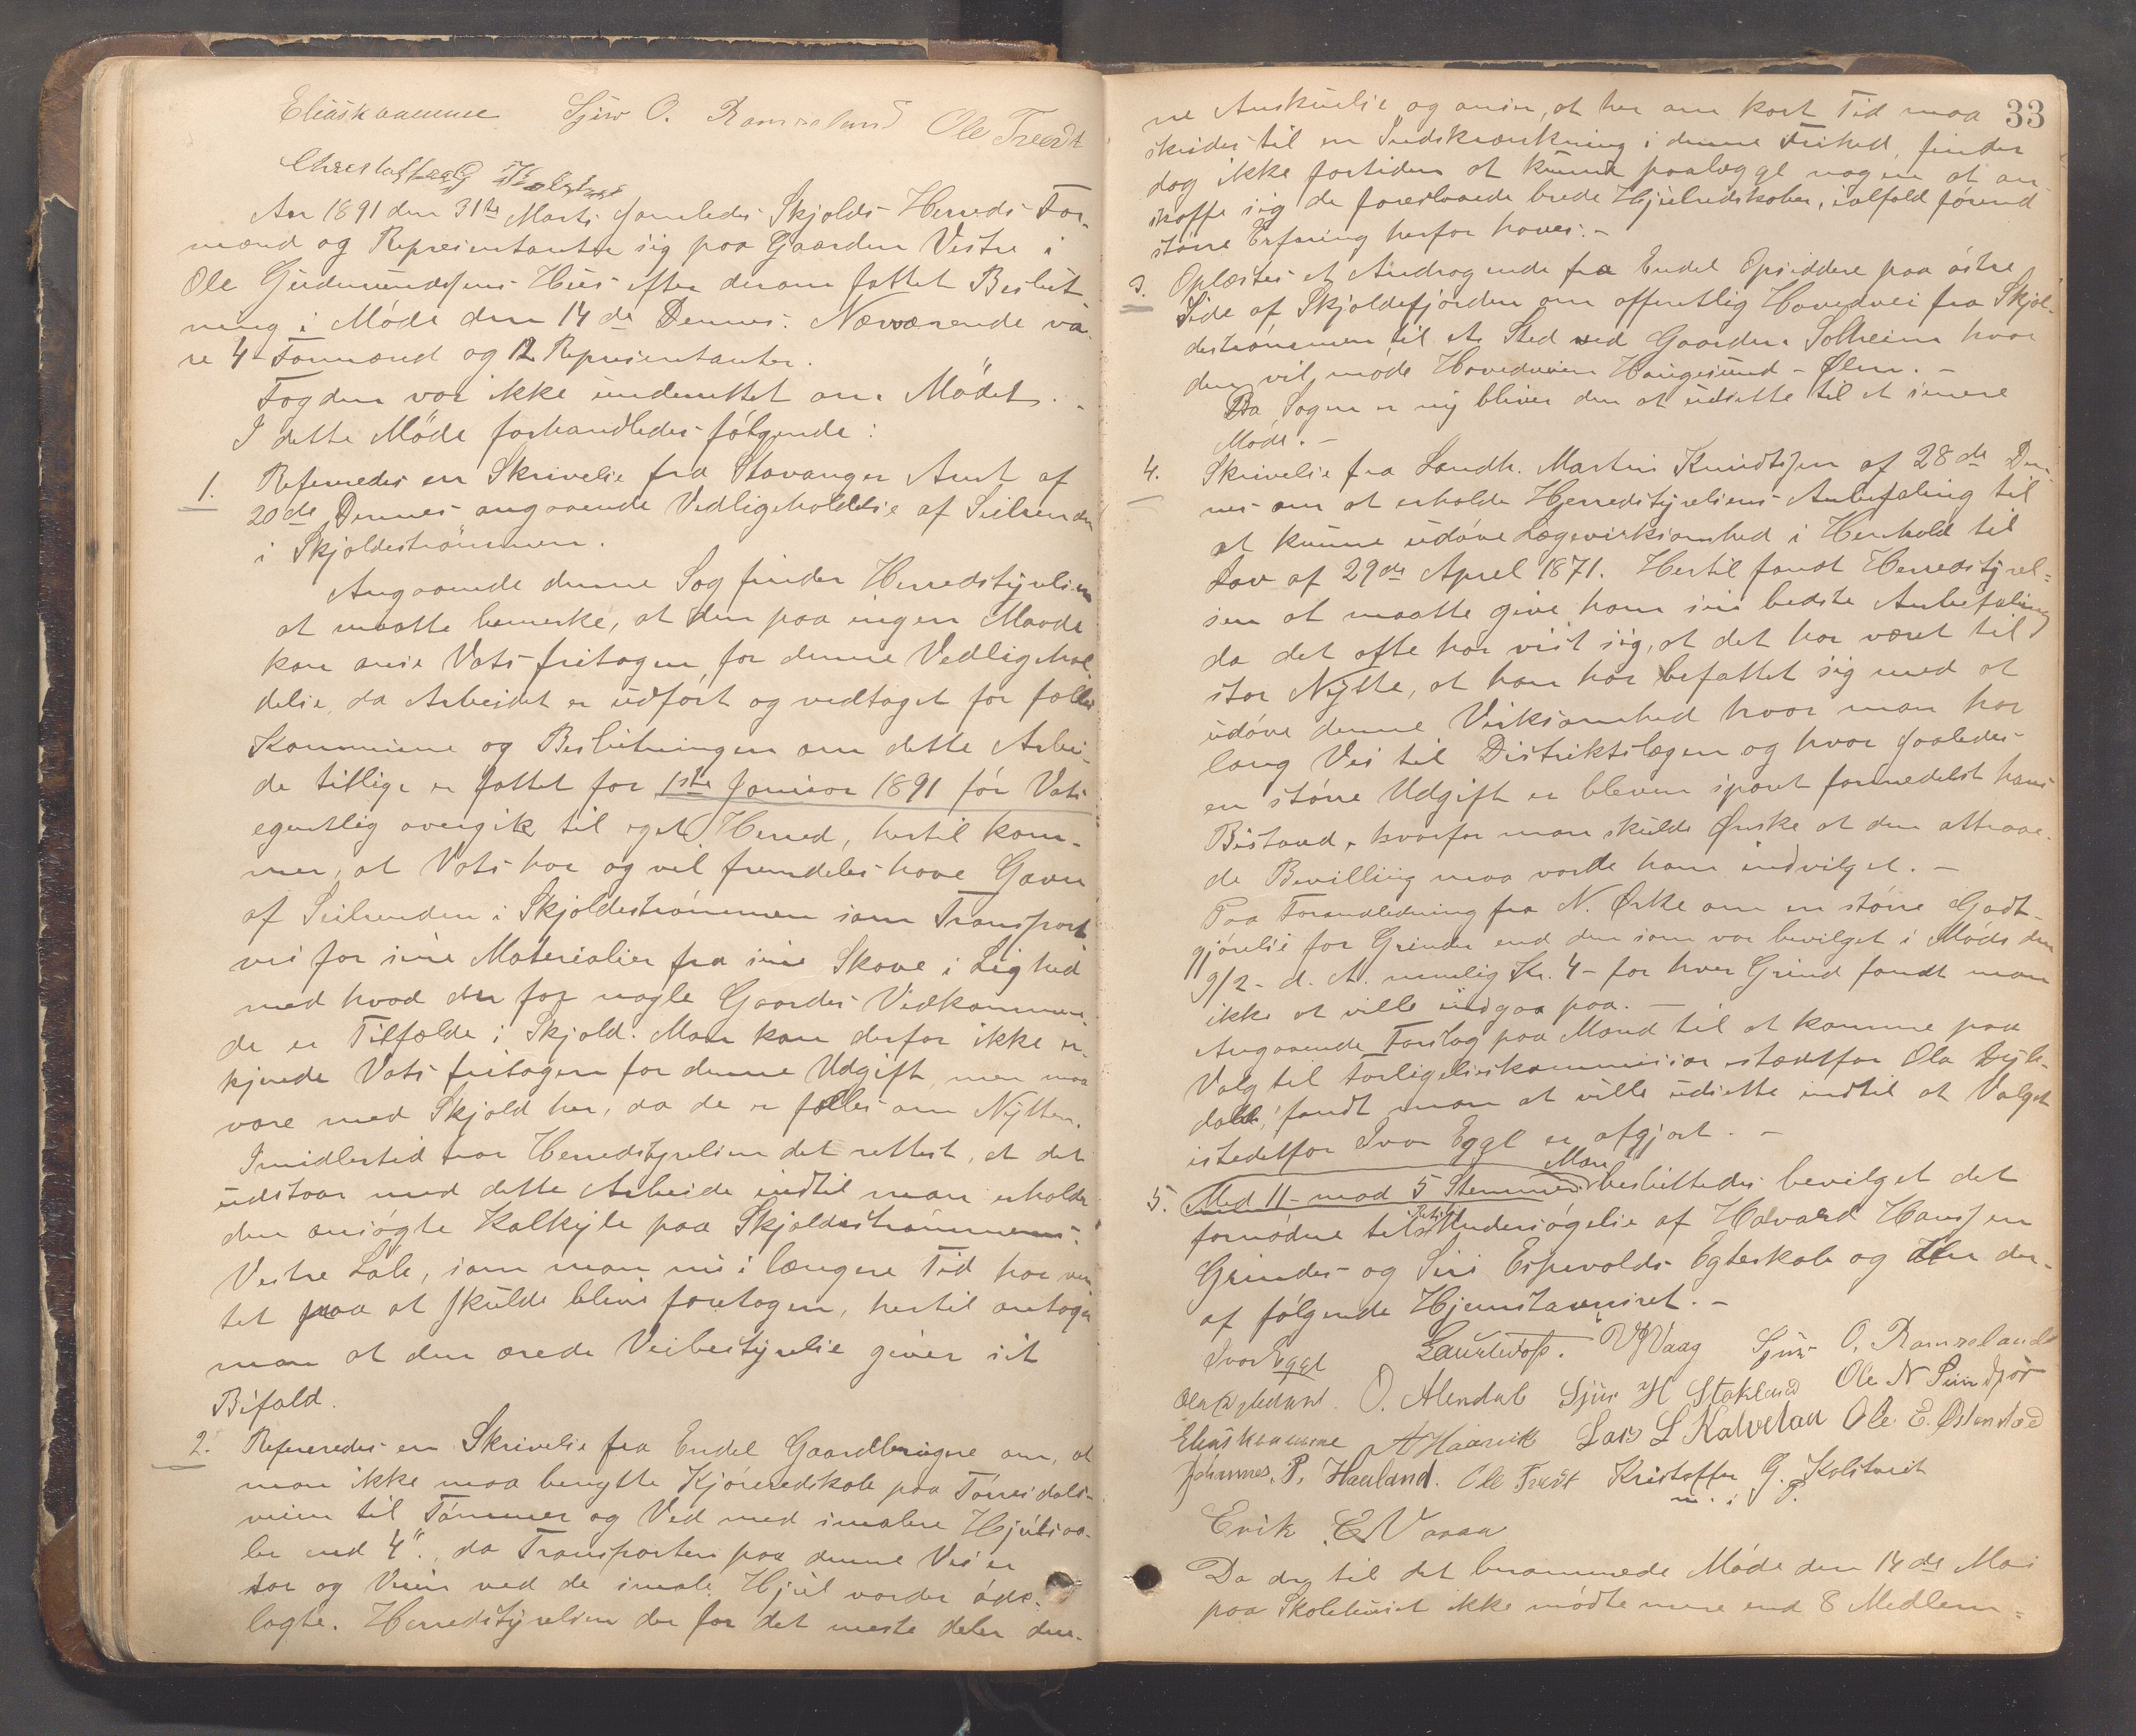 Elias kvamme Sjur O. Ramseland Ole Tredt
Christoffer G Kolstveit
Aar 1891 den 31te Marts samledes Skjolds Herreds For-
mænd og Repræsentanter sig paa Gaarden Vestre i
Ole Gudmundsens Hus efter derom fattet Beslut-
ning i Møde den 14de Dennes. Nærværende va-
re 4 Formænd og 12 Repræsentanter.
Fogden var ikke underrettet om Mødet.
I dette Møde forhandledes følgende:
1. Refereredes en Skrivelse fra Stavanger Amt af
20de Dennes angaaende Vedligeholdelse af Seilrenden
i Skjoldestrømmen.
Angaaende denne Sag finder Herredstyrelsen
at maatte bemerke, at den paa ingen Maade
kan anse Vats fritagen for denne Vedligehol
delse, da Arbeidet er udført og vedtaget for fælles
Kommune og Beslutningen om dette Arbei-
de tillige er fattet før 1ste Januar 1891 før Vats
egentlig overgik til eget Herred, hertil kom-
mer, at Vats har og vil fremdeles have Gavn
af Seilrenden i Skjoldestrømmen som Transport
vei for sine Materialier fra sine Skove i Lighed
med hvad der for nogle Gaardes Vedkommen-
de er Tilfælde i Skjold. Man kan derfor ikke er-
kjende Vats fritagen for denne Udgift, men maa
være med Skjold her, da de er fælles om Nytten.
Imidlertid tror Herredstyrelsen det rettest, at det
udstaar med dette Arbeide indtil man erholder
den ansøgte Kalkyle paa Skjoldestrømmens
Vestre Løb, som man nu i længere Tid har ven
tet paa at skulde blive foretagen, hertil antager
man at den ærede Veibestyrelse giver sit
Bifald.
2. Refereredes en Skrivelse fra Endel Gaardbrugere om, at
man ikke maa benytte Kjøreredskab paa Tørresdals-
veien til Tømmer og Ved med smalere Hjulsaa-
ler end 4"., da Transporten paa denne Vei er
stor og Veien ved de smale Hjul vorder øde-
lagte. Herredstyrelsen der for det meste deler den-
33
ne Anskuelse og anser, at her om kort Tid maa
skrides til en Indskrænkning i denne Frihed, finder
dog ikke fortiden at kunne paalægge nogen at an-
skaffe sig de foreslaaede brede Hjulredskaber, ialfald førend
større Erfaring herfor haves.-
3. Oplæstes et Andragende fra Endel Opsiddere paa østre
Side af Skjoldefjorden om offentlig Hovedvei fra Skjol-
destrømmen til et Sted ved Gaarden Solheim hvor
den vil møde Hovedveien Haugesund - Ølen. -
Da Sagen er ny bliver den at udsætte til et senere
Møde. -
4. Skrivelse fra Landh. Martin Knudtsen af 28de Den-
nes om at erholde Herredstyrelsens Anbefaling til
at kunne udøve Lægevirksomhed i Henhold til
Lov af 29de April 1871. Hertil fandt Herredstyrel=
sen at maatte give ham sin bedste Anbefaling
da det ofte har vist sig, at det har været til
stor Nytte, at han har befattet sig med at
udøve denne Virksomhed hvor man har
lang Vei til Distriktslægen og hvor saaledes
en større Udgift er bleven sparet formedelst hans
Bistand, hvorfor man skulde Ønske at den attraae-
de Bevilling maa vorde ham indvilget. -
Paa Foranledning fra N. Ørke om en større Godt-
gjørelse for Grinder end den som var bevilget i Møde den
9/2 - d. A. nemlig Kr. 4 - for hver Grind fandt man
ikke at ville indgaa paa. -
Angaaende Forslag paa Mænd til at komme paa
Valg til Forligelseskommissær istedetfor Ola Dyb-
dahl, fandt man at ville udsætte indtil at Valget
istedetfor Ivar Egge er afgjort. -
Man
5. Med 11 mod 5 Stemmer besluttedes bevilget det
fornødne til Undersøgelse af Halvard Hansen
Grindes og Siri Espevolds Egteskab og den der-
af følgende Hjemstavnsret. -
Ivar Egge Laurhdoß. V Vaag Sjur O. Ramseland
O. Alendal Sjur H Stokland Ole N
Elias kvamme A Haavik Lars L Kalvelau Ole E. Østenstad
Johannes. P. Haaland. Ole Tredt Kristoffer G. Kolstveit
m. i P.
Erik E Varaa
Da der til det berammede Møde den 14de Mai
paa Skolehuset ikke mødte mere end 8 Medlem=